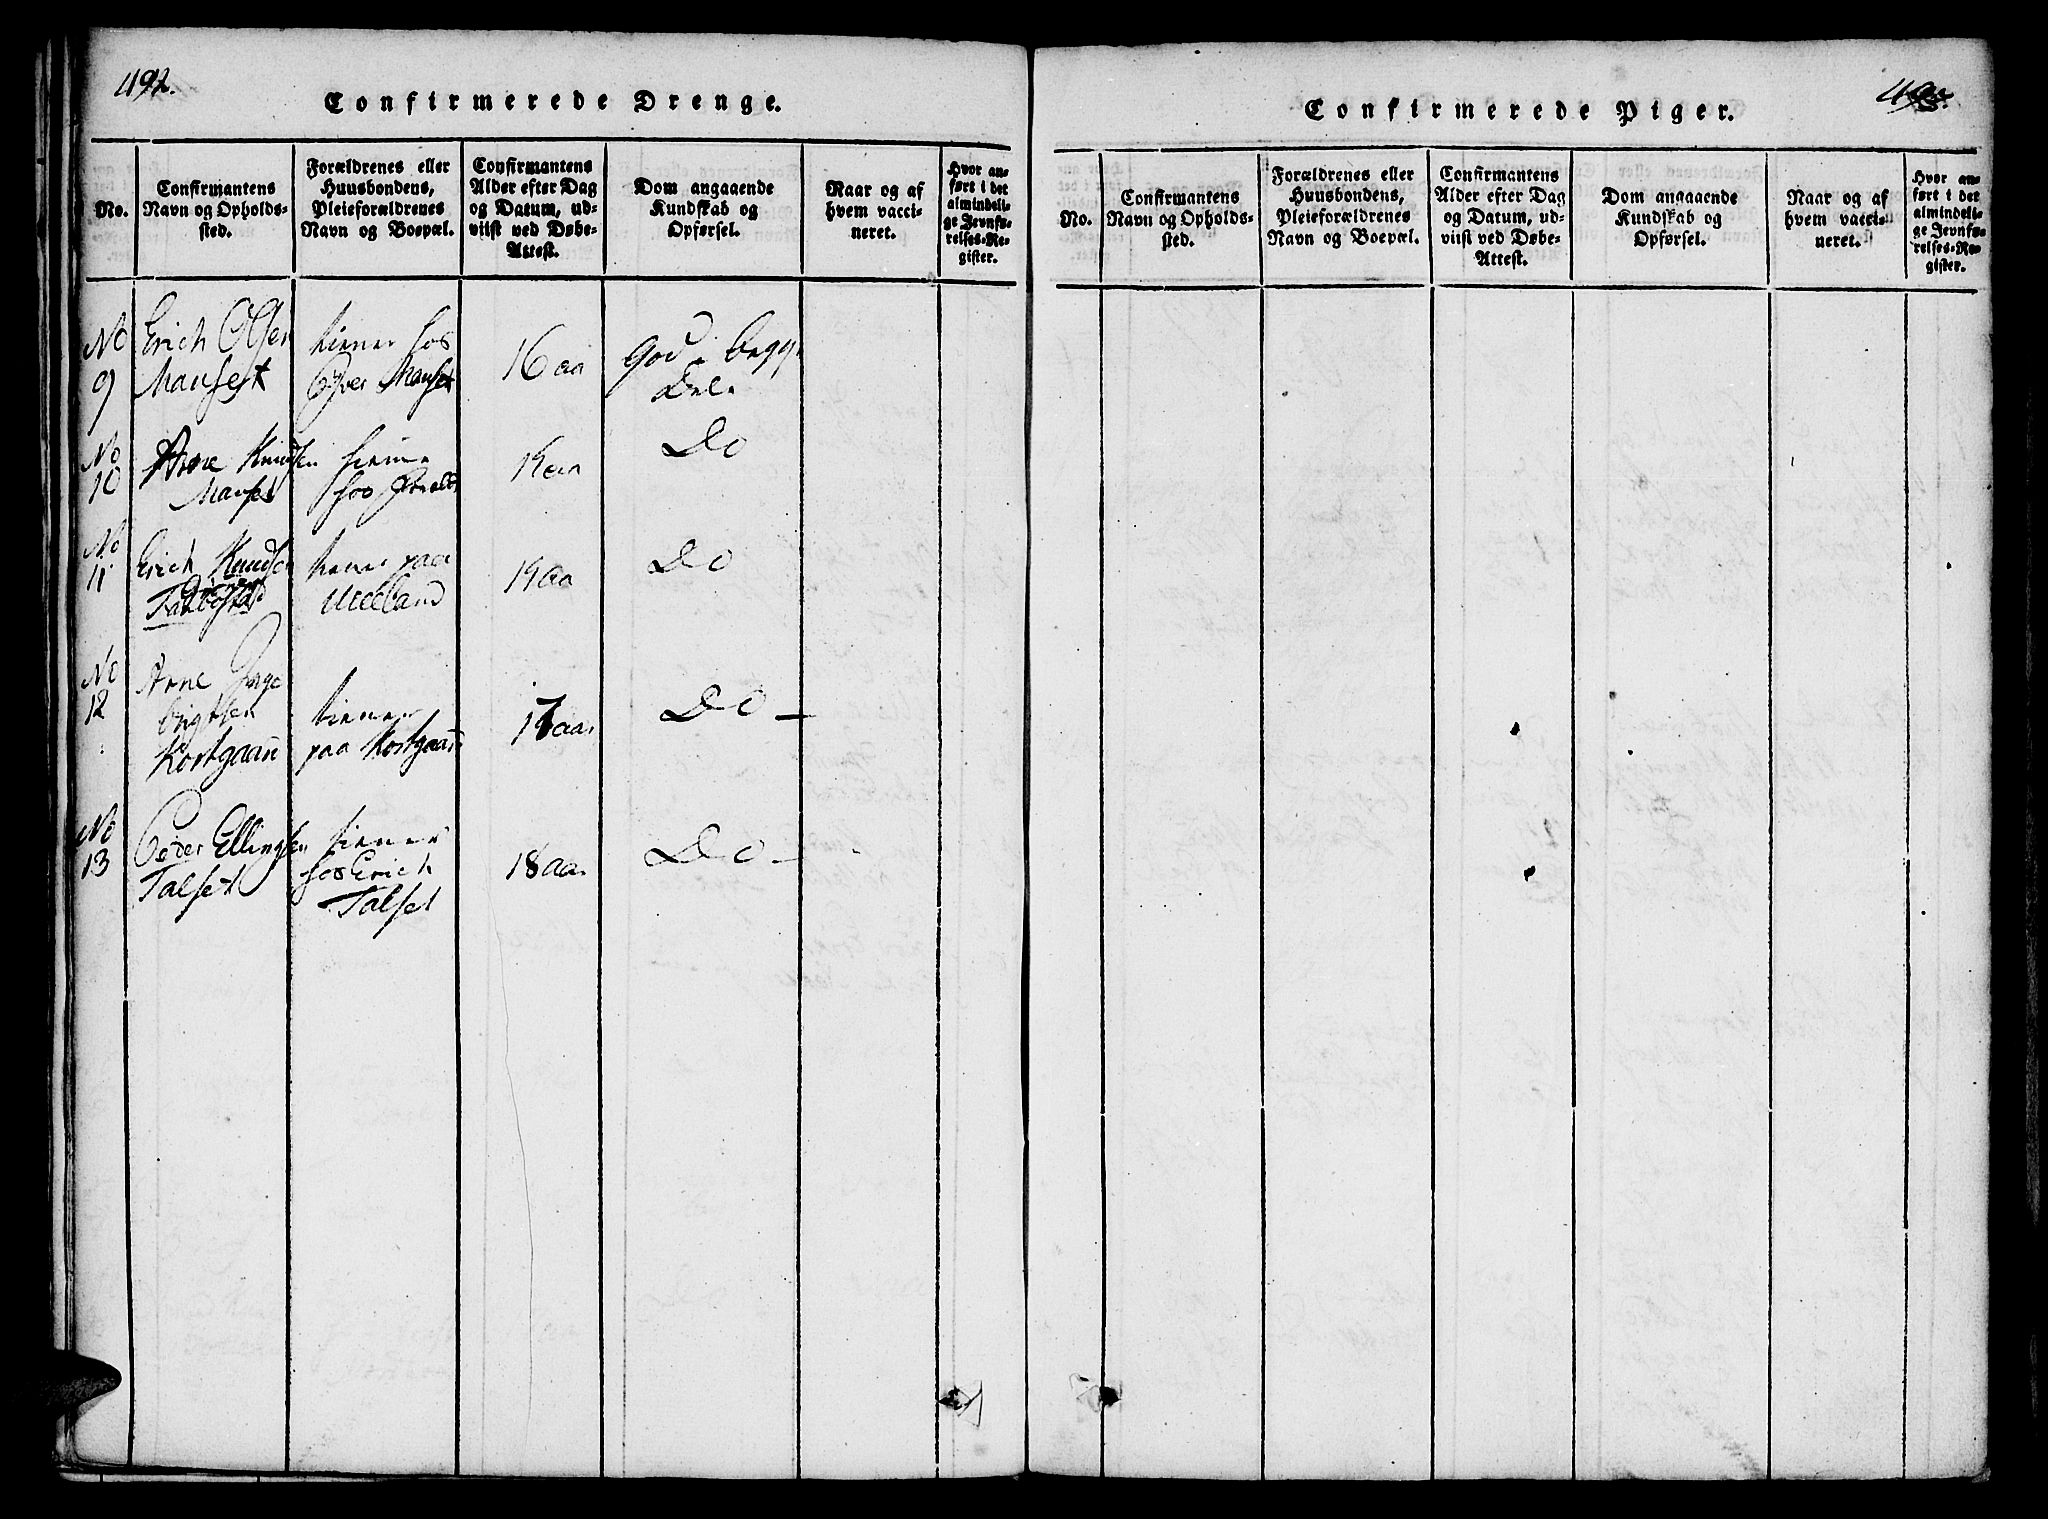 492.
Confirmerede Drenge.
No.
Confirmantens
Navn og Opholds-
sted.
Forældrenes eller
Huusbondens,
Pleieforældrenes
Navn og Boepæl.
Confirmantens
Alder efter Dag
og Datum, ud-
viist ved Døbe-
Attest.
Dom angaaende
Kundskab og
Opførsel.
Naar og af
hvem vacci-
neret.
Hvor an-
ført i det
almindeli-
ge Jevnfø-
relses-Re-
gister.
No
9
Erich Olsen
Mauset
tiener hos
Mauset
16 aa
god i begge
Dele
No
10
Arne Knudsen
Mauset
hos
aa
Do
No
11
Erich Knudsen
paa
19 aa
Do
No
12
Arne Inge
brigtsen
Kortgaarn
tiener
paa Kortgaarn
17 aar
Do
No
13
Peder Ellingsen
Talset
tiener
hos Erich
Talset
18 aar
Do
Confirmerede Piger.
No.
Confirmantens
Navn og Opholds-
sted.
Forældrenes eller
Huusbondens,
Pleieforældrenes
Navn og Boepæl.
Confirmantens
Alder efter Dag
og Datum, ud-
viist ved Døbe-
Attest.
Dom angaaende
Kundskab og
Opførsel.
Naar og af
hvem vacci-
neret.
Hvor an-
ført i det
almindeli-
ge Jevnfø-
relses-Re-
gister.